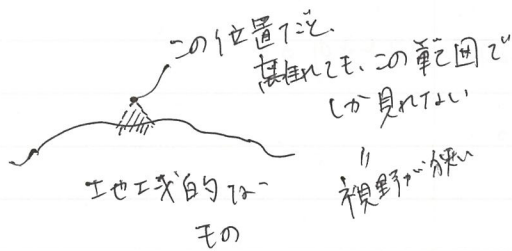 この位置だと、
離れても、この範囲で
しか見れない
〃
視野が狭い
地域的な
もの